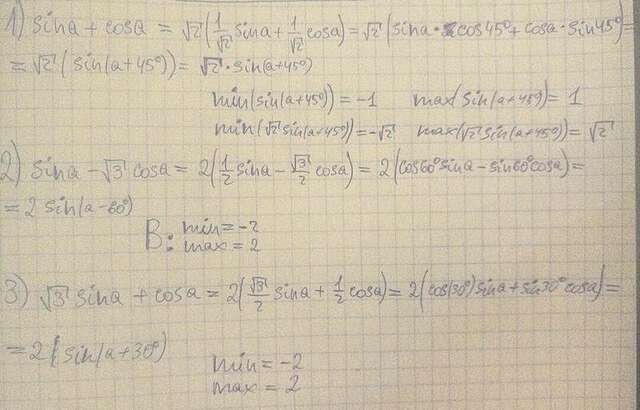 1) sina + cosa = √2(1/√2 sina + 1/√2 cosa) = √2(sina · cos45° + cosa · sin45°) =
= √2(sin(a+45°)) = √2 · sin(a+45°)
min(sin(a+45°)) = -1 max(sin(a+45°)) = 1
min(√2 sin(a+45°)) = -√2 max(√2 sin(a+45°)) = √2
2) sina - √3 cosa = 2(1/2 sina - √3/2 cosa) = 2(cos60° sina - sin60° cosa) =
= 2 sin(a-60°)
B: min = -2
max = 2
3) √3 sina + cosa = 2(√3/2 sina + 1/2 cosa) = 2(cos(30°) sina + sin30° cosa) =
= 2(sin(a+30°)
min = -2
max = 2